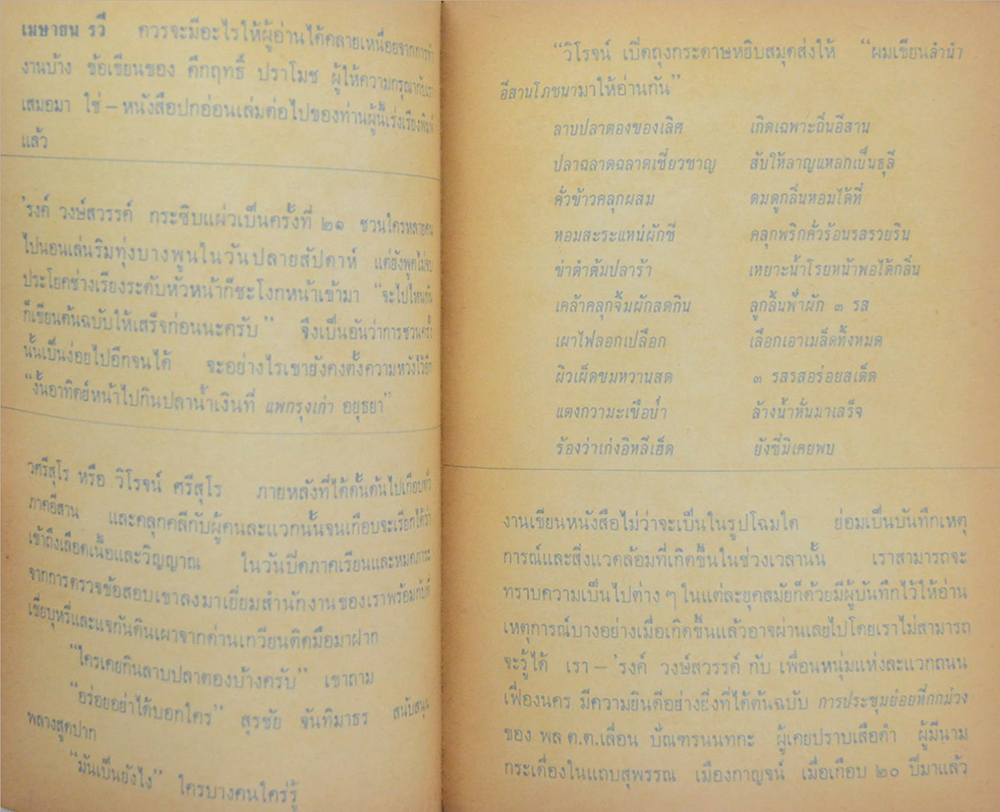 เมษายน รวี ควรจะมีอะไรให้ผู้อ่านได้คลายเหนื่อยจากการทำ
งานบ้าง ข้อเขียนของ คึกฤทธิ์ ปราโมช ผู้ให้ความกรุณากับเรา
เสมอมา ใช่ – หนังสือปกอ่อนเล่มต่อไปของท่านผู้นี้เร่งเรียงพิมพ์
แล้ว
'รงค์ วงษ์สวรรค์ กระซิบแผ่วเป็นครั้งที่ ๒๑ ชวนใครหลายคน
ไปนอนเล่นริมทุ่งบางพูนในวันปลายสัปดาห์ แต่ยังพูดไม่จบ
ประโยคช่างเรียงระดับหัวหน้าก็ชะโงกหน้าเข้ามา "จะไปไหนกัน
ก็เขียนต้นฉบับให้เสร็จก่อนนะครับ" จึงเป็นอันว่าการชวนครั้ง
นั้นเป็นง่อยไปอีกจนได้ จะอย่างไรเขายังคงตั้งความหวังไว้อีก
"งั้นอาทิตย์หน้าไปกินปลาน้ำเงินที่ แพกรุงเก่า อยุธยา"
วศรีสุโร หรือ วิโรจน์ ศรีสุโร ภายหลังที่ได้ดั้นด้นไปเกือบทั่ว
ภาคอีสาน และคลุกคลีกับผู้คนละแวกนั้นจนเกือบจะเรียกได้ว่า
เข้าถึงเลือดเนื้อและวิญญาณ ในวันปิดภาคเรียนและหมดภาระ
จากการตรวจข้อสอบเขาลงมาเยี่ยมสำนักงานของเราพร้อมกับที่
เขี่ยบุหรี่และแจกันดินเผาจากด่านเกวียนติดมือมาฝาก
"ใครเคยกินลาบปลาตองบ้างครับ" เขาถาม
"อร่อยอย่าได้บอกใคร" สุรชัย จันทิมาธร สนับสนุน
พลางสูดปาก
"มันเป็นยังไง" ใครบางคนใคร่รู้
"วิโรจน์ เปิดถุงกระดาษหยิบสมุดส่งให้ "ผมเขียนลำนำ
อีสานโภชนามาให้อ่านกัน"
ลาบปลาตองของเลิศ เกิดเฉพาะถิ่นอีสาน
ปลาฉลาดฉลาดเชี่ยวชาญ สับให้ลาญแหลกเป็นธุลี
คั่วข้าวคลุกผสม ดมดูกลิ่นหอมได้ที่
หอมสะระแหน่ผักชี คลุกพริกคั่วร้อนรสรวยริน
ข่าตำต้มปลาร้า เหยาะน้ำโรยหน้าพอได้กลิ่น
เคล้าคลุกจิ้มผักสดกิน ลูกลิ้นฟ้าผัก ๓ รส
เผาไฟลอกเปลือก เลือกเอาเมล็ดทั้งหมด
ผิวเผ็ดขมหวานสด ๓ รสรสอร่อยสเด็ด
แตงกวามะเขือบ้ำ ล้างน้ำหั่นมาเสร็จ
ร้องว่าเก่งอิหลีเฮ็ด ยังขี่มิเคยพบ
งานเขียนหนังสือไม่ว่าจะเป็นในรูปโฉมใด ย่อมเป็นบันทึกเหตุ
การณ์และสิ่งแวดล้อมที่เกิดขึ้นในช่วงเวลานั้น เราสามารถจะ
ทราบความเป็นไปต่าง ๆ ในแต่ละยุคสมัยก็ด้วยมีผู้บันทึกไว้ให้อ่าน
เหตุการณ์บางอย่างเมื่อเกิดขึ้นแล้วอาจผ่านเลยไปโดยเราไม่สามารถ
จะรู้ได้ เรา – 'รงค์ วงษ์สวรรค์ กับ เพื่อนหนุ่มแห่งละแวกถนน
เฟื่องนคร มีความยินดีอย่างยิ่งที่ได้ต้นฉบับ การประชุมย่อยที่กกม่วง
ของ พล ต.ต.เลื่อน บัณฑรนนทกะ ผู้เคยปราบเสือดำ ผู้มีนาม
กระเดื่องในแถบสุพรรณ เมืองกาญจน์ เมื่อเกือบ ๒๐ ปีมาแล้ว